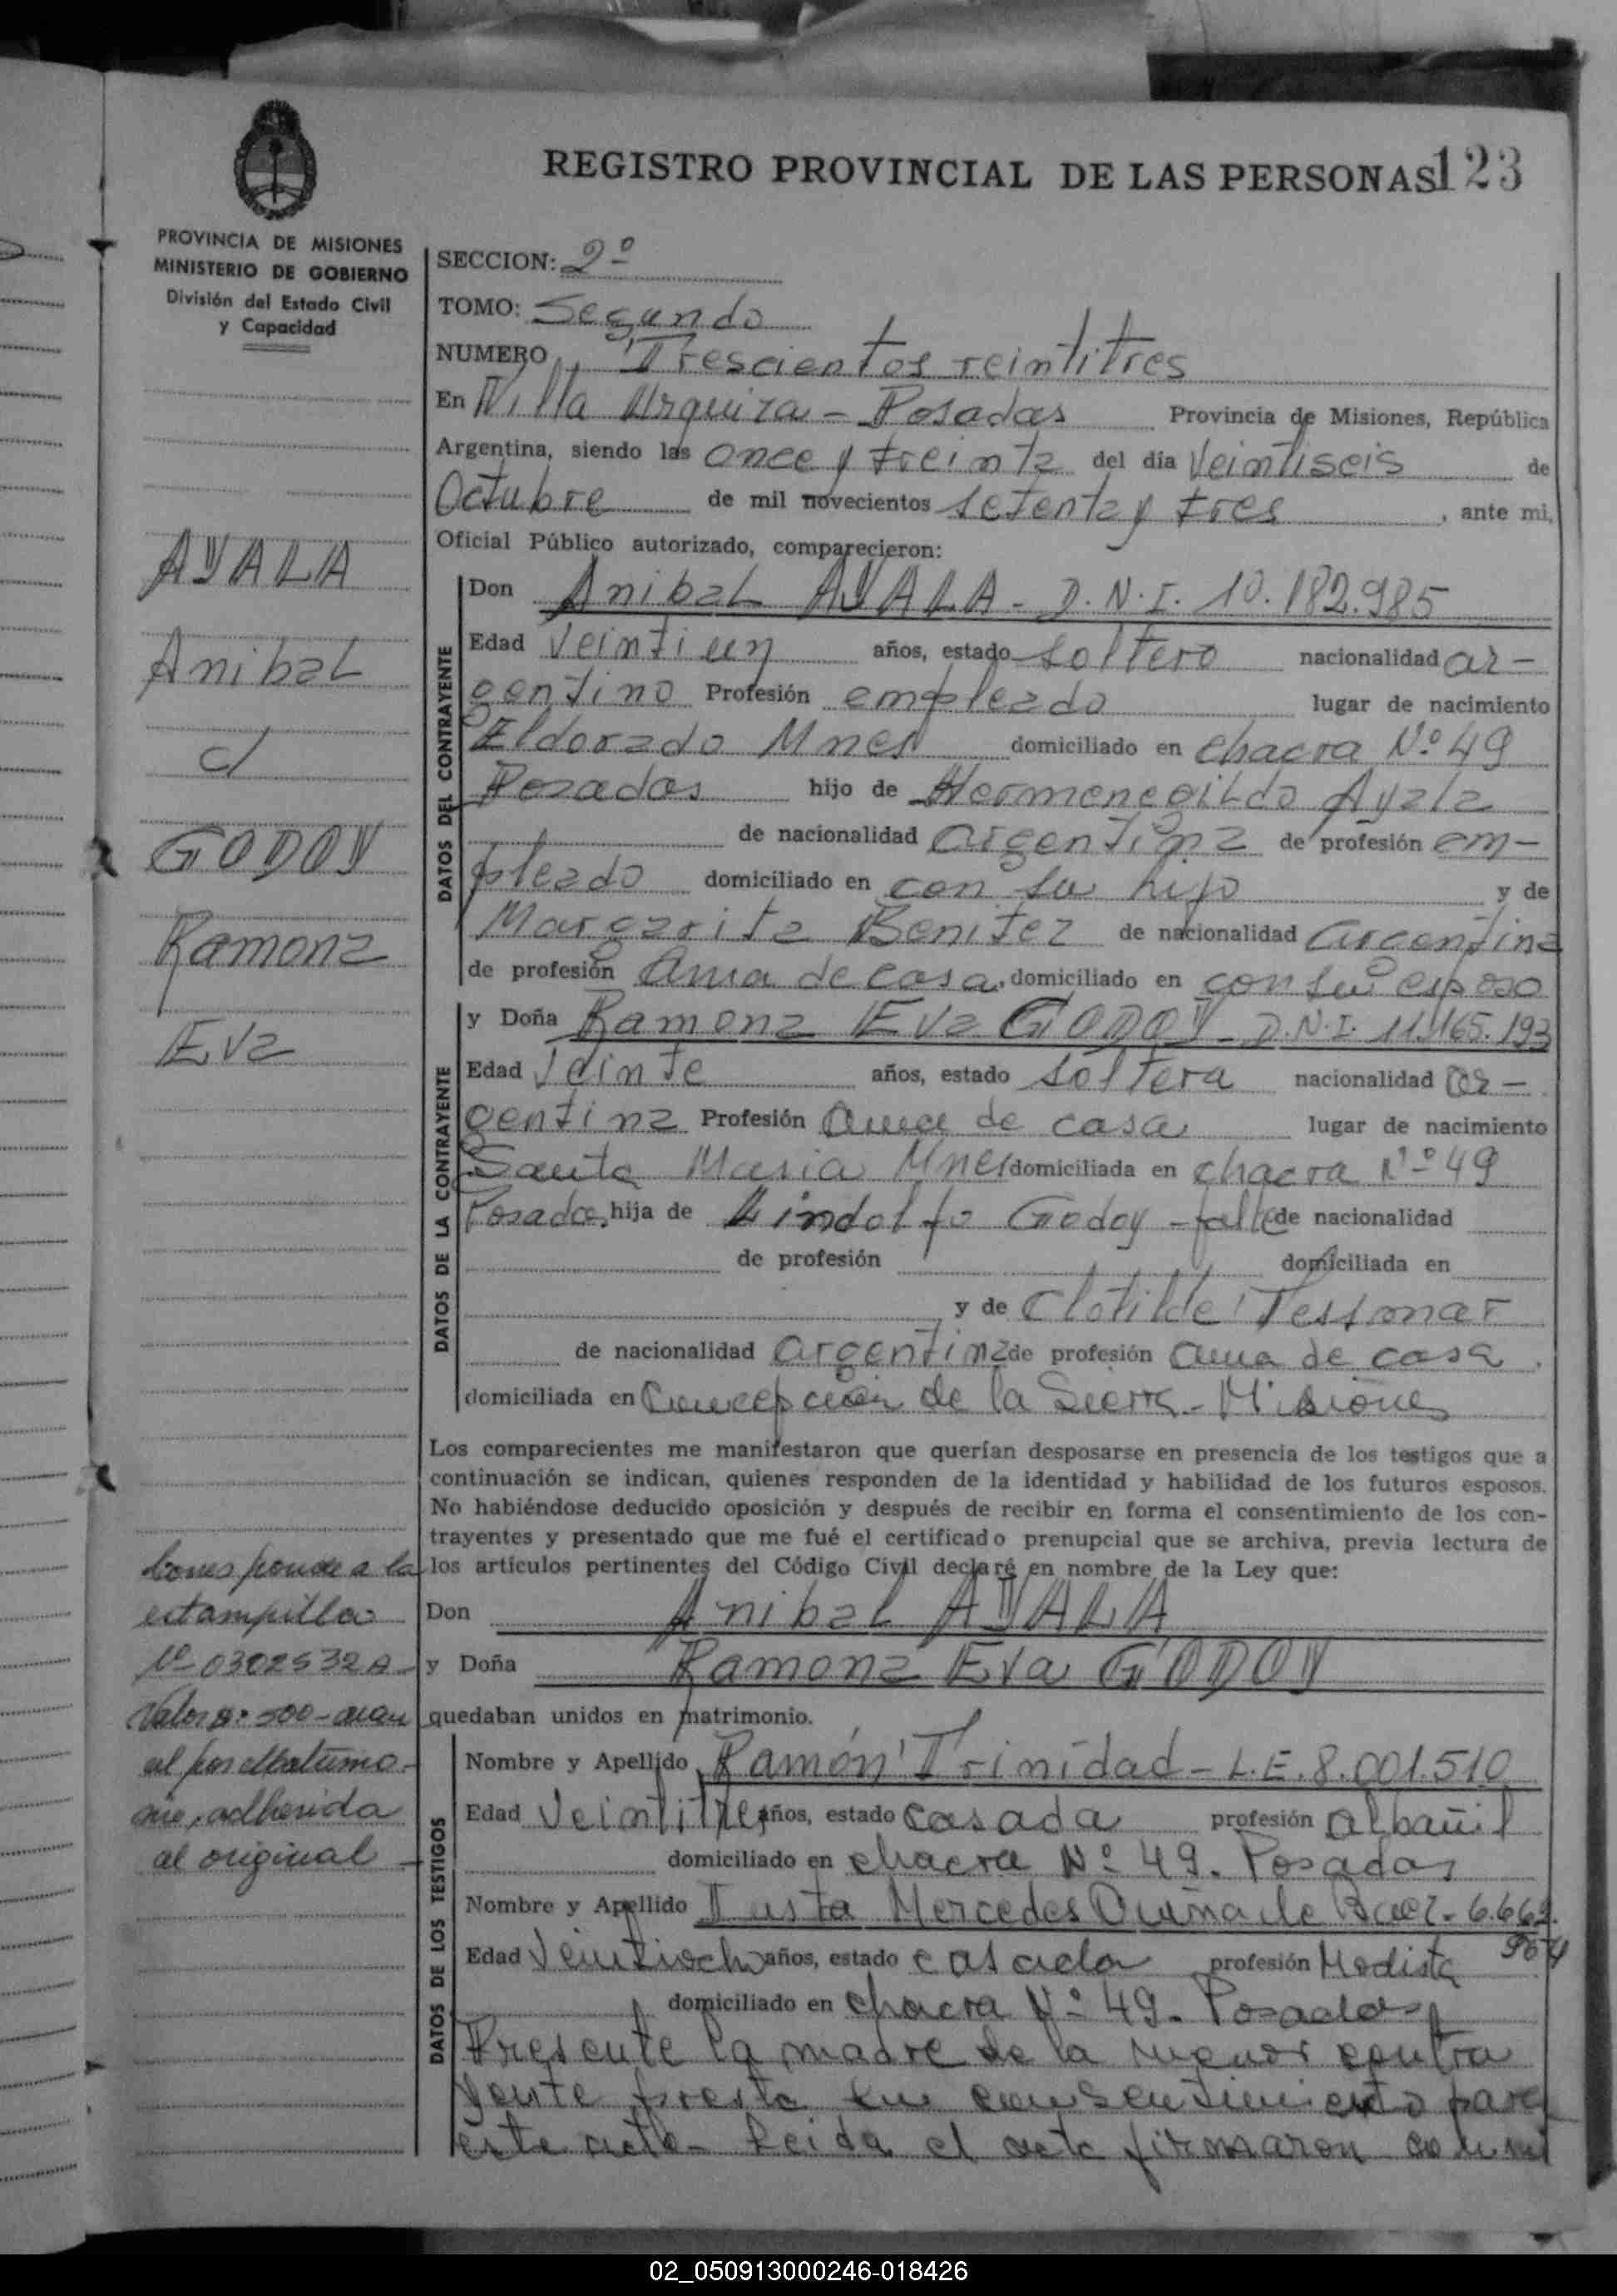 REGISTRO PROVINCIAL DE LAS PERSONAS 123
PROVINCIA DE MISIONES
MINISTERIO DE GOBIERNO
División del Estado Civil
y Capacidad
AYALA
Anibal
c/
GODOY
Ramona
Eva
Corresponde a la
estampilla
Nº 0302532A
Valor $: 500-
adherida
al original
SECCION: 2º
TOMO: Segundo
NUMERO Trescientos veintitres
En Villa Urquiza - Posadas Provincia de Misiones, República
Argentina, siendo las once y treinta del día Veintiseis de
Octubre de mil novecientos setenta y tres, ante mi,
Oficial Público autorizado, comparecieron:
DATOS DEL CONTRAYENTE
Don Anibal AYALA - D.N.I. 10.182.985
Edad Veintiun años, estado soltero nacionalidad ar-
gentino Profesión empleado lugar de nacimiento
Eldorado Mnes domiciliado en chacra Nº 49
Posadas hijo de Hermenegildo Ayala
de nacionalidad argentina de profesión em-
pleado domiciliado en con su hijo y de
Margarita Benitez de nacionalidad argentina
de profesión Ama de casa, domiciliado en con su esposo
DATOS DE LA CONTRAYENTE
y Doña Ramona Eva GODOY - D.N.I. 11.165.193
Edad Veinte años, estado soltera nacionalidad ar-
gentina Profesión ama de casa lugar de nacimiento
Santa Maria Mnes domiciliada en chacra Nº 49
Posadas, hija de Lindolfo Godoy - de nacionalidad
de profesión domiciliada en
y de Clotilde Tessmar
de nacionalidad argentina de profesión ama de casa.
domiciliada en Concepcion de la Sierra - Misiones
Los comparecientes me manifestaron que querían desposarse en presencia de los testigos que a
continuación se indican, quienes responden de la identidad y habilidad de los futuros esposos.
No habiéndose deducido oposición y después de recibir en forma el consentimiento de los con-
trayentes y presentado que me fué el certificado prenupcial que se archiva, previa lectura de
los artículos pertinentes del Código Civil declaré en nombre de la Ley que:
Don Anibal AYALA
y Doña Ramona Eva GODOY
quedaban unidos en matrimonio.
DATOS DE LOS TESTIGOS
Nombre y Apellido Ramón Trinidad - L.E. 8.001.510
Edad Veintitres años, estado casada profesión albañil
domiciliado en chacra Nº 49. Posadas
Nombre y Apellido Justa Mercedes de Baez - 6.662.
964
Edad Veintiocho años, estado casada profesión Modista
domiciliado en chacra Nº 49. Posadas
Presente la madre de la menor contra
yente presta su consentimiento para
este acto - Leida el acta firmaron con mi
02_050913000246-018426